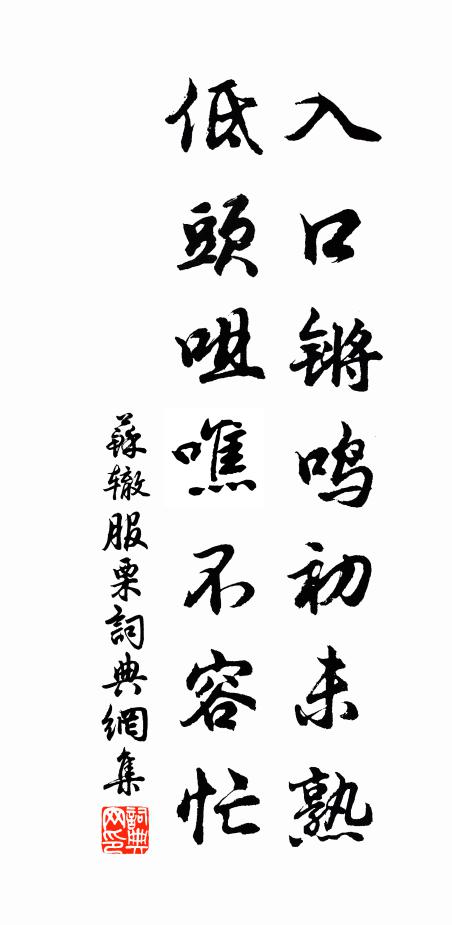 入口锵鸣初未熟
低頭咀噍不容忙
蘇辙服栗詞典網集
詞典网印